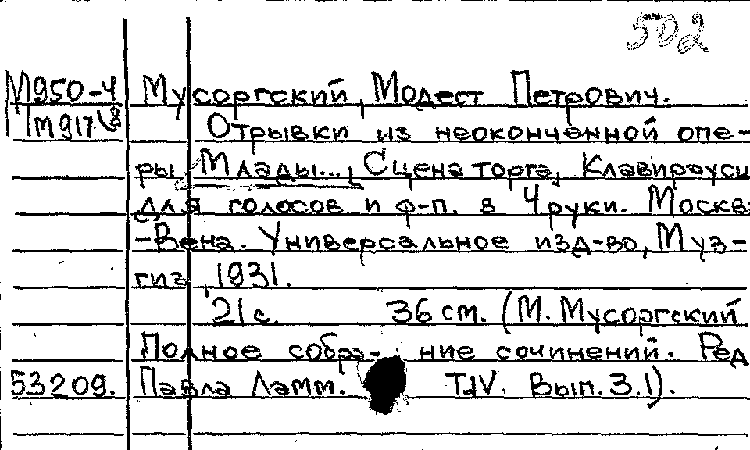 502
М950-4 Мусоргский, Модест Петрович.
Отрывки из неоконченной опе-
ры Млады..., Сцена торга, Клавираусц
для голосов и ф-п. в 4 руки. Москва
-Вена. Универсальное изд-во, Муз-
гиз, 1931.
21 с. 36 см. (М. Мусоргский
Полное собра- ние сочинений. Ред
53209. Павла Ламм. Т.IV. Вып. 3.1).